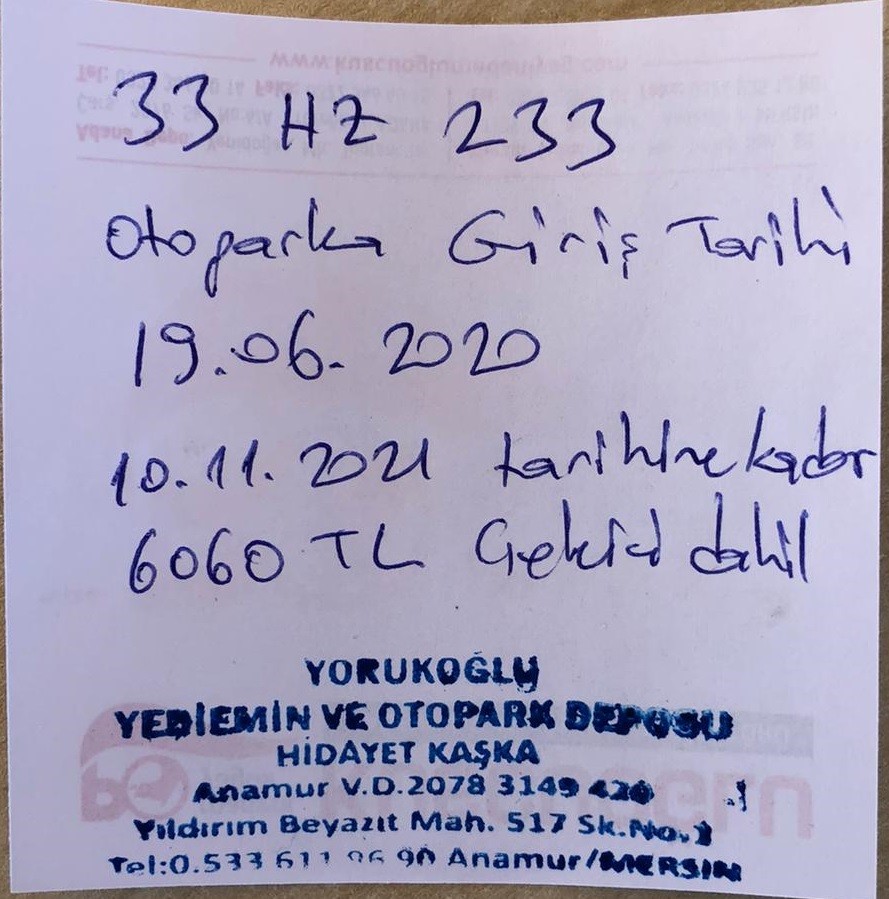 33 HZ 233
Otoparka Giriş Tarihi
19.06.2020
10.11.2021 tarihine kadar
6060 TL Çekici dahil
YORUKOĞLU
YEDİEMİN VE OTOPARK DEPOSU
HİDAYET KAŞKA
Anamur V.D.2078 3149 420
Yıldırım Beyazıt Mah. 517 Sk.No.
Tel:0.533 611 96 90 Anamur/MERSIN